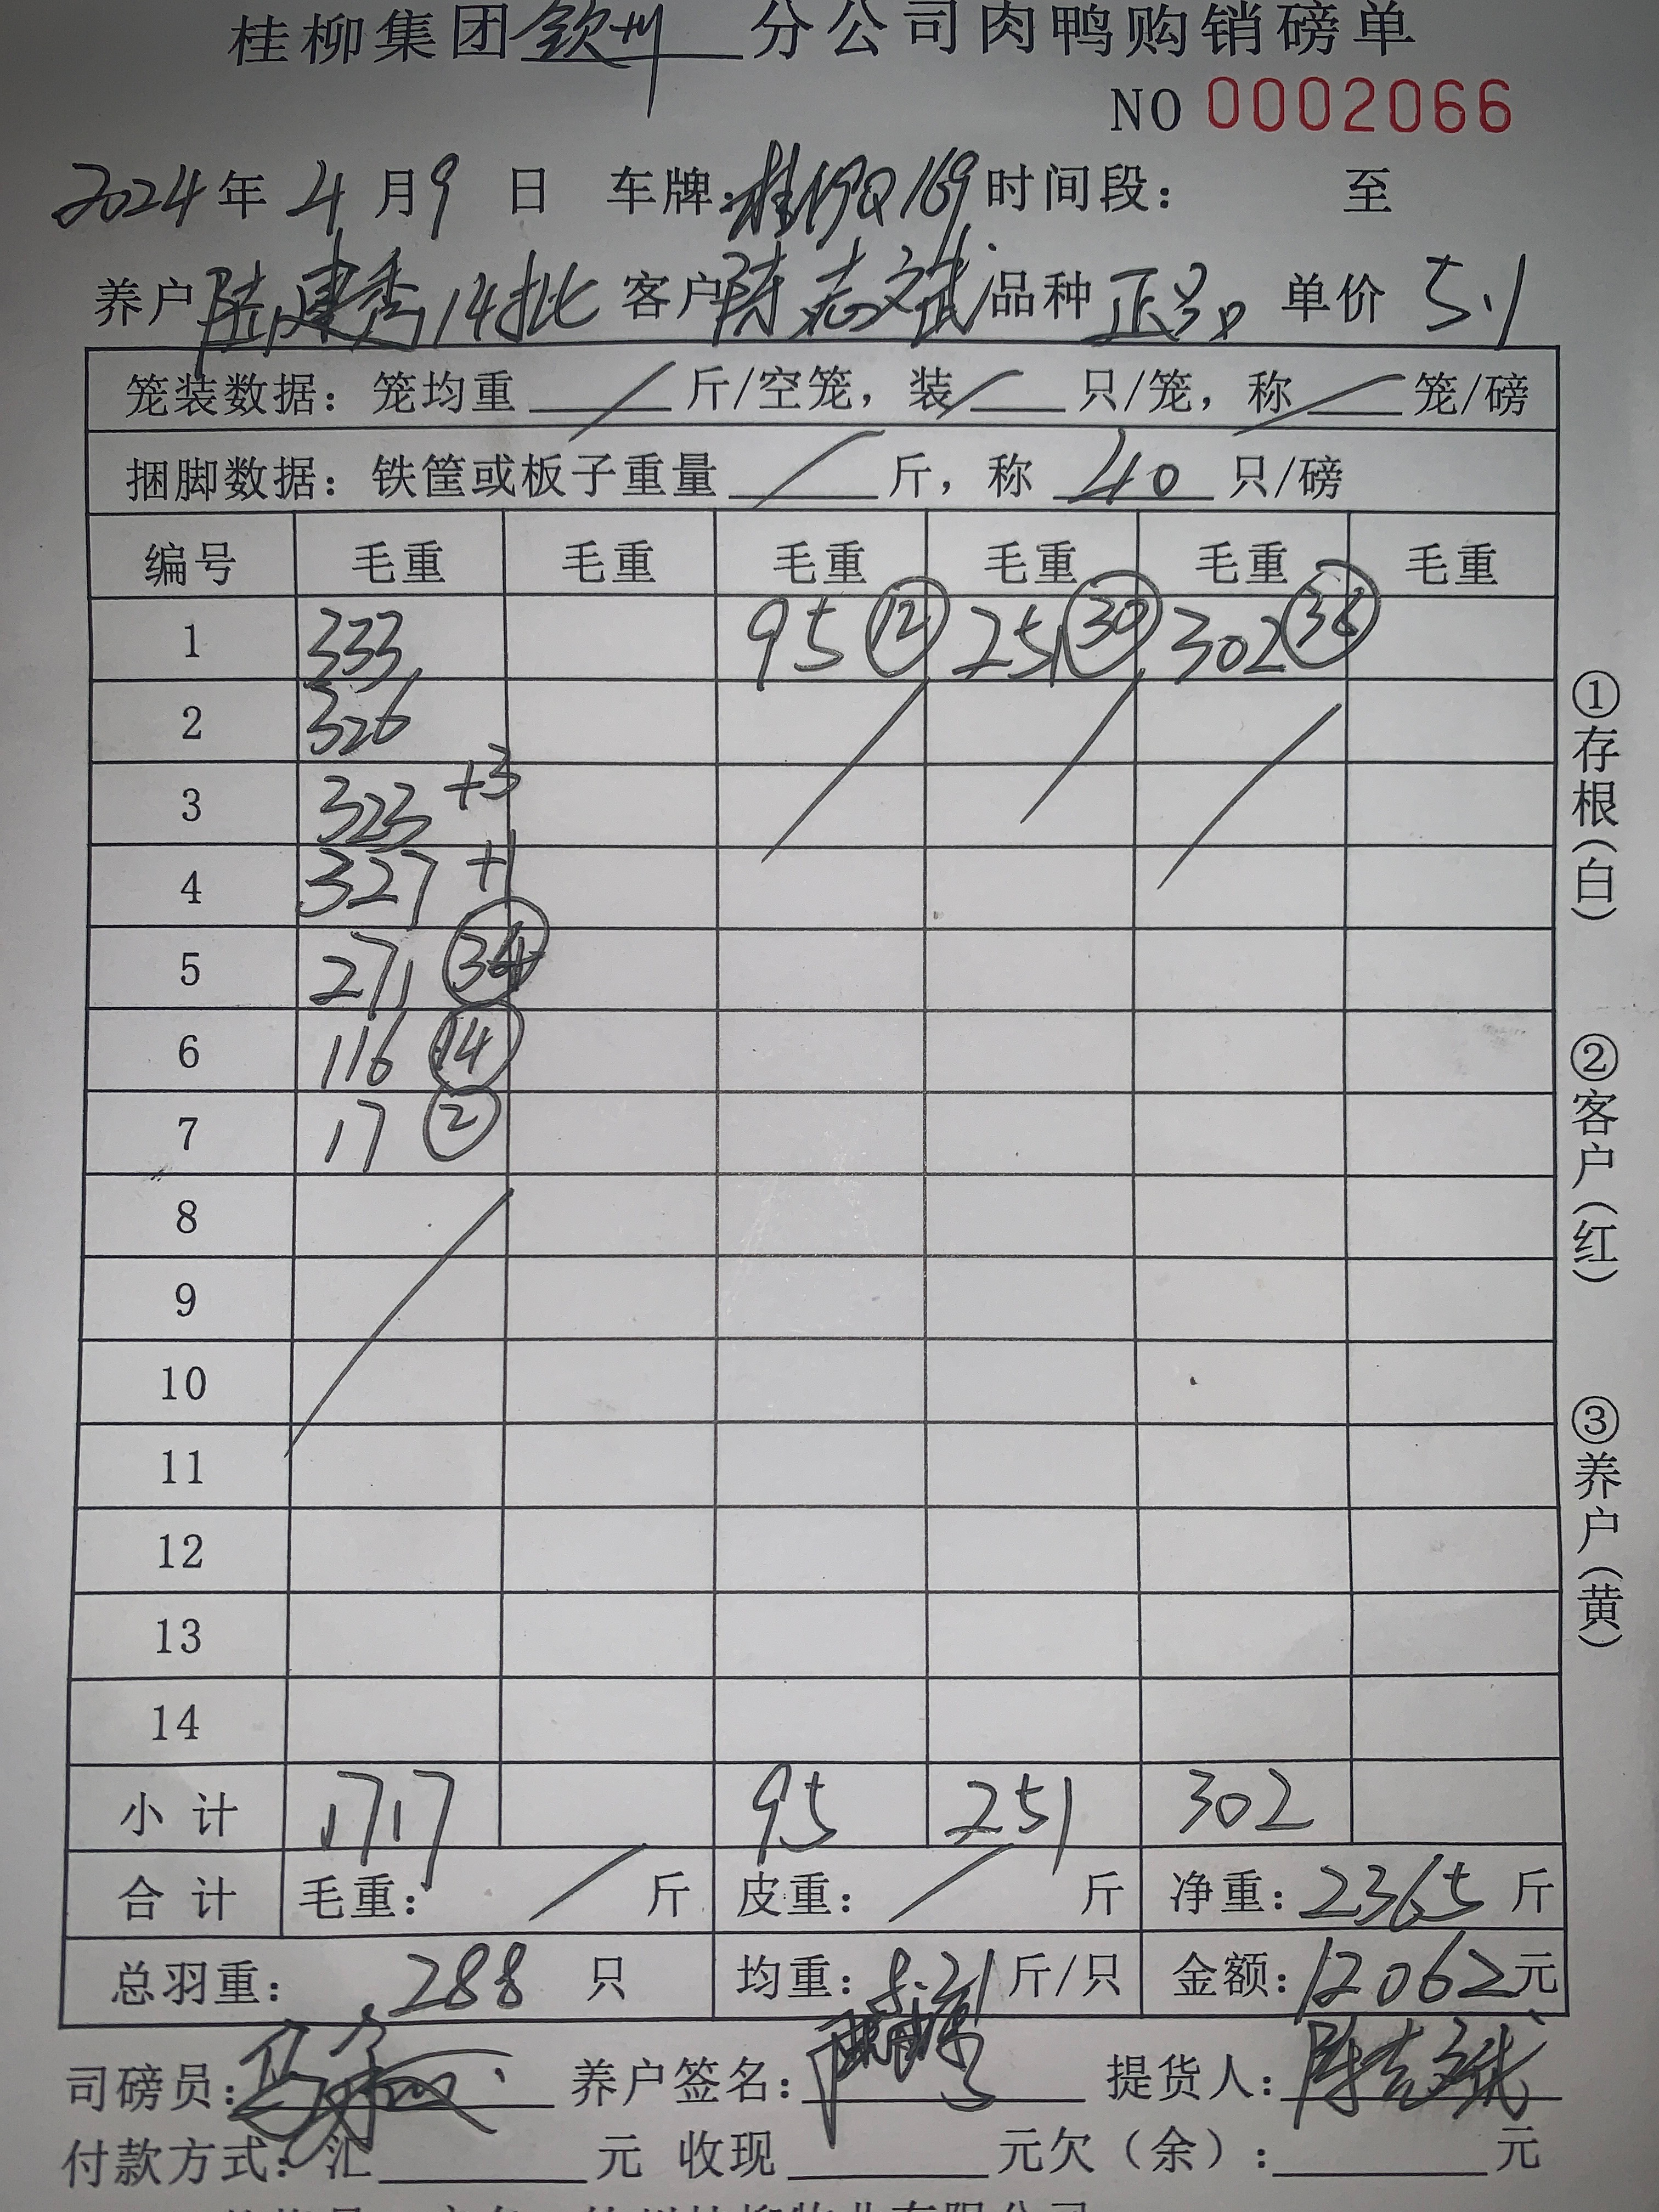 桂柳集团钦州分公司肉鸭购销磅单
NO 0002066
2024年4月9日 车牌: 时间段: 至
养户陆建秀14批 客户陈志斌 品种 正品 单价 5.1
笼装数据: 笼均重 / 斤/空笼, 装 / 只/笼, 称 / 笼/磅
捆脚数据: 铁筐或板子重量 / 斤, 称 40 只/磅
编号 毛重 毛重 毛重 毛重 毛重 毛重
1 333 95 ⑫ 251 ㉚ 302 ㊱
2 326
3 323 +3
4 327 +1
5 271 ㉞
6 116 ⑭
7 17 ②
8
9
10
11
12
13
14
小计 1717 95 251 302
合计 毛重: / 斤 皮重: / 斤 净重: 2365 斤
总羽重: 288 只 均重: 8.21 斤/只 金额: 12062元
司磅员: 养户签名: 提货人: 陈志斌
付款方式: 汇 元 收现 元欠(余): 元
①存根(白)
②客户(红)
③养户(黄)